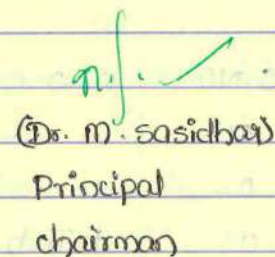 (Dr. M. Sasidhar)
Principal
chairman